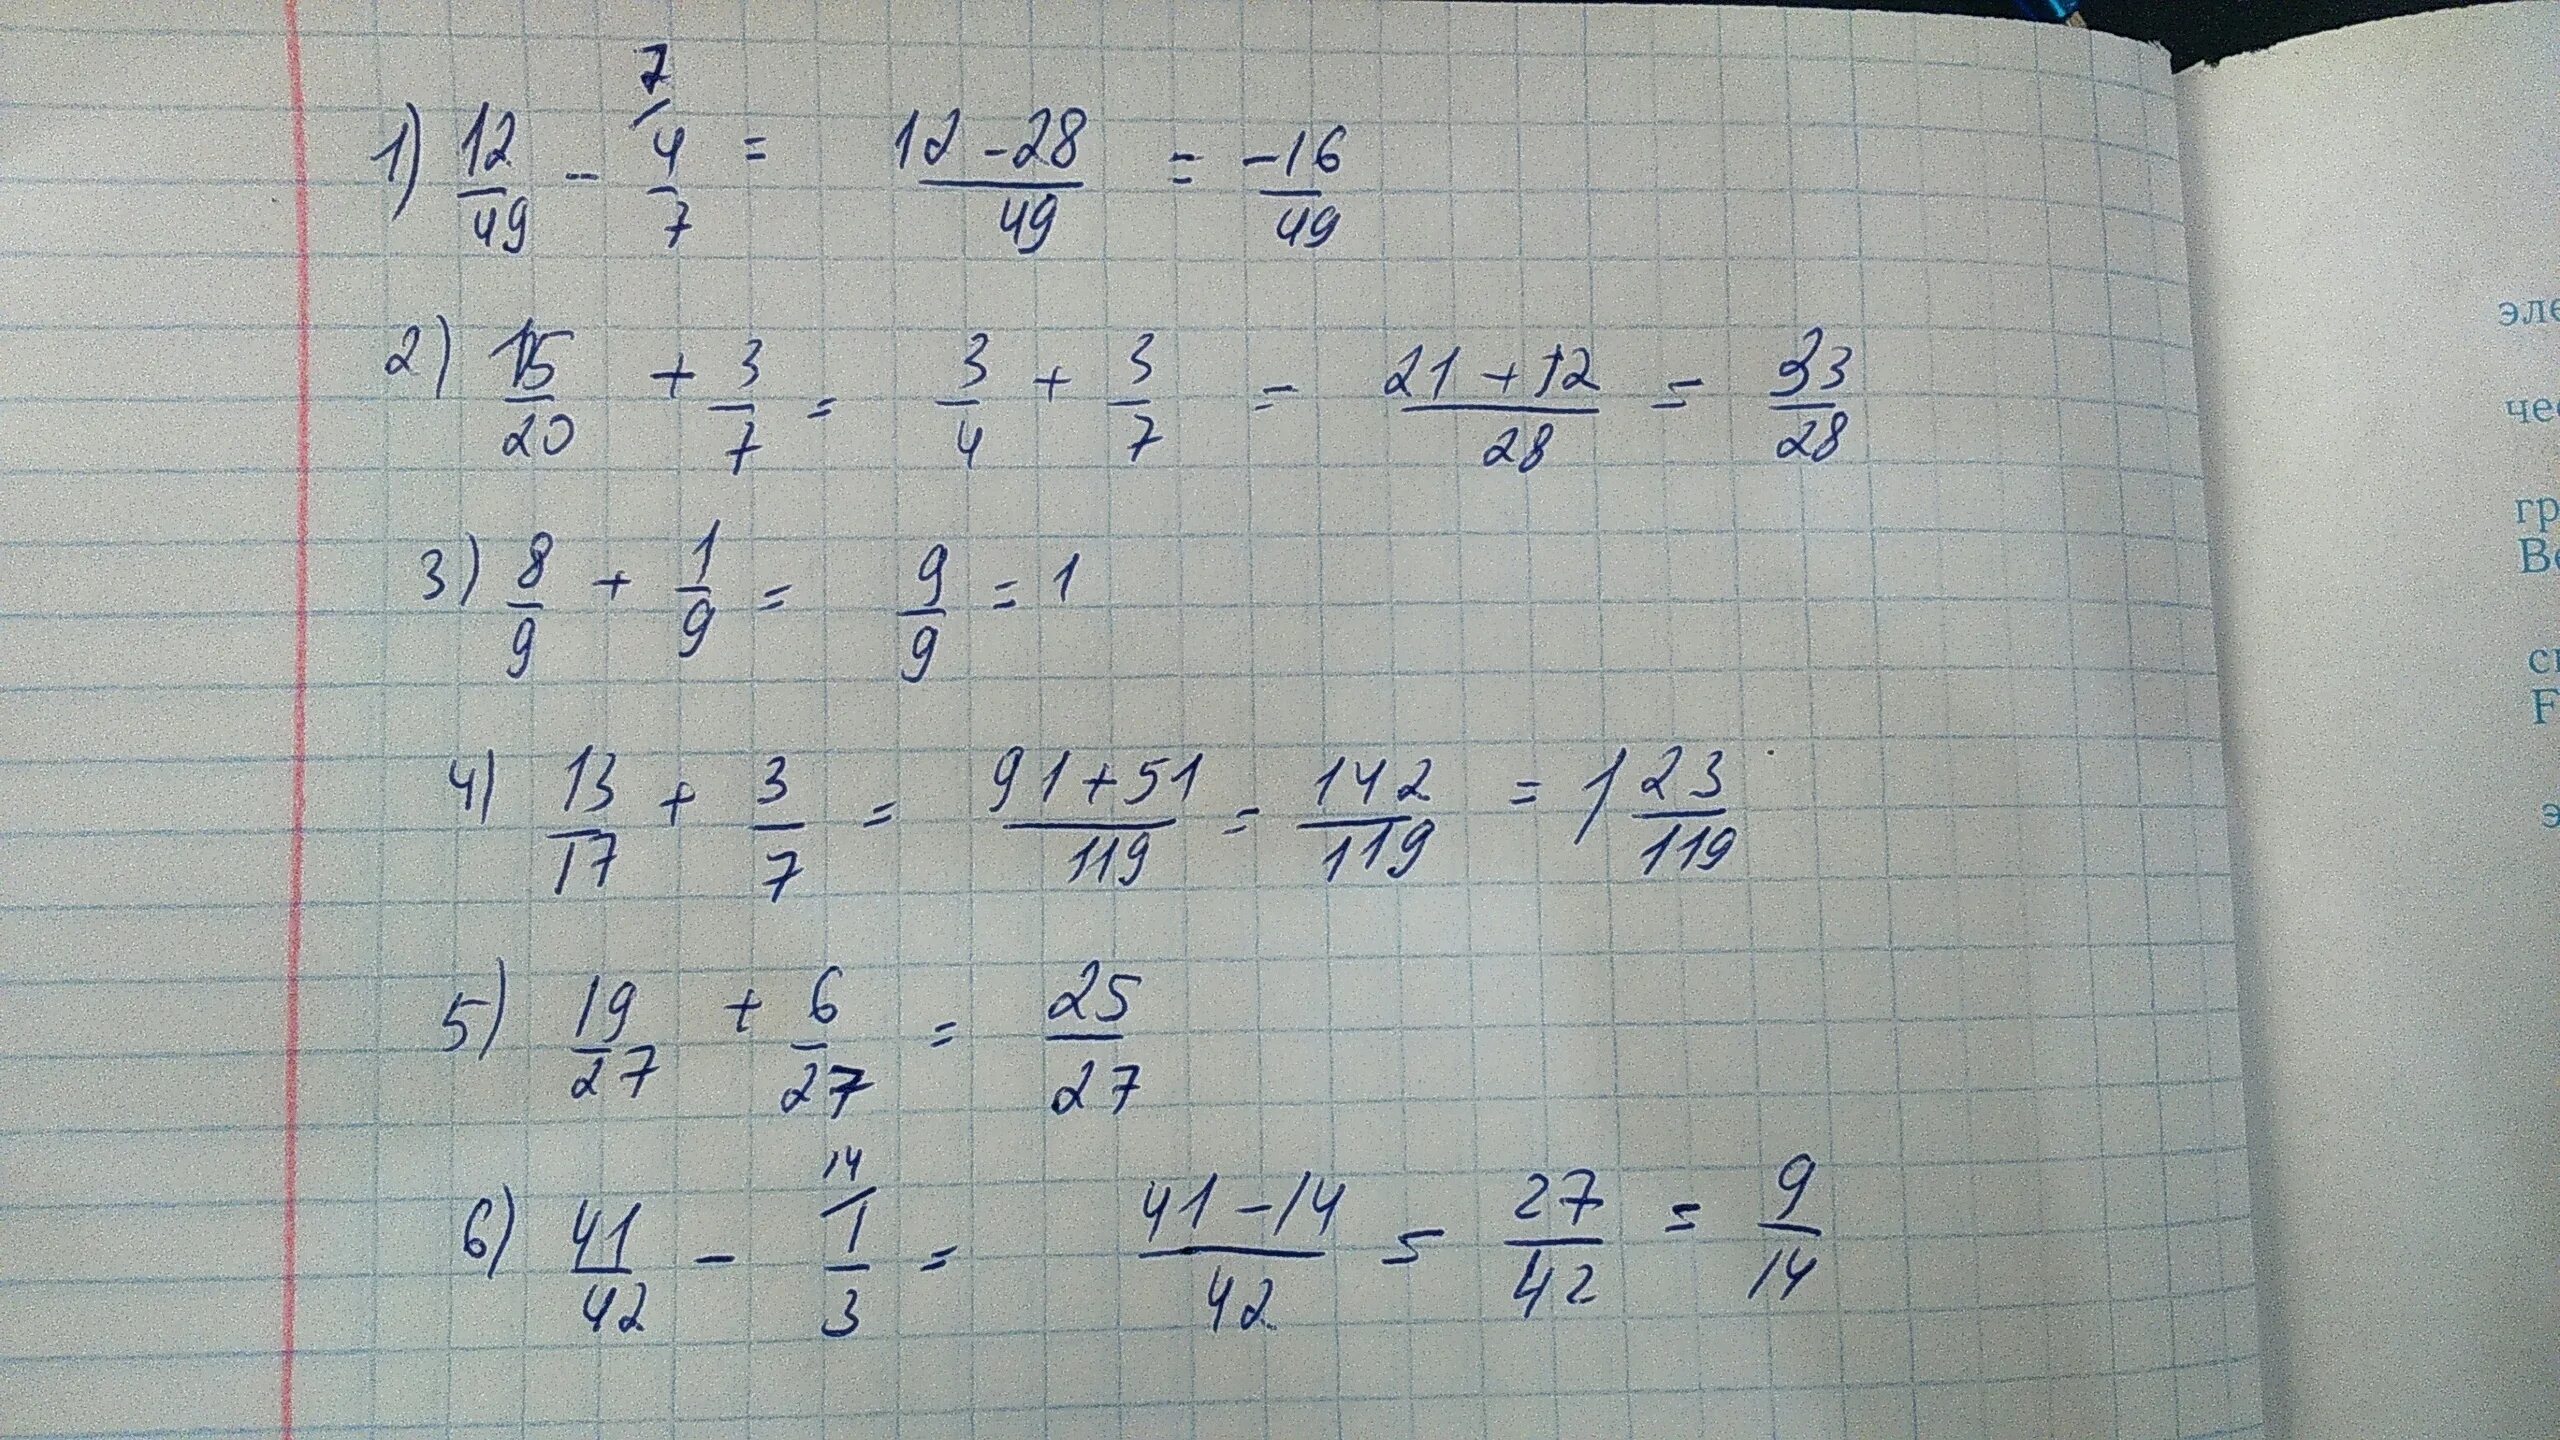 1) 12/49 - 7/ 4/7 = (12-28)/49 = -16/49
2) 15/20 + 3/7 = 3/4 + 3/7 = (21+12)/28 = 33/28
3) 8/9 + 1/9 = 9/9 = 1
4) 13/17 + 3/7 = (91+51)/119 = 142/119 = 1 23/119
5) 19/27 + 6/27 = 25/27
6) 41/42 - 14/ 1/3 = (41-14)/42 = 27/42 = 9/14